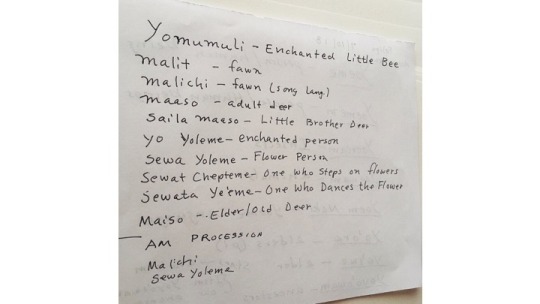 Yomumuli - Enchanted Little Bee
malit - fawn
malichi - fawn (song lang.)
maaso - adult deer
Saila maaso - Little Brother Deer
yo Yoleme - enchanted person
Sewa Yoleme - Flower Person
Sewat Chepteme - One who Steps on flowers
Sewata Ye'eme - One Who Dances the Flower
Maiso - Elder/Old Deer
AM PROCESSION
Malichi
Sewa Yoleme